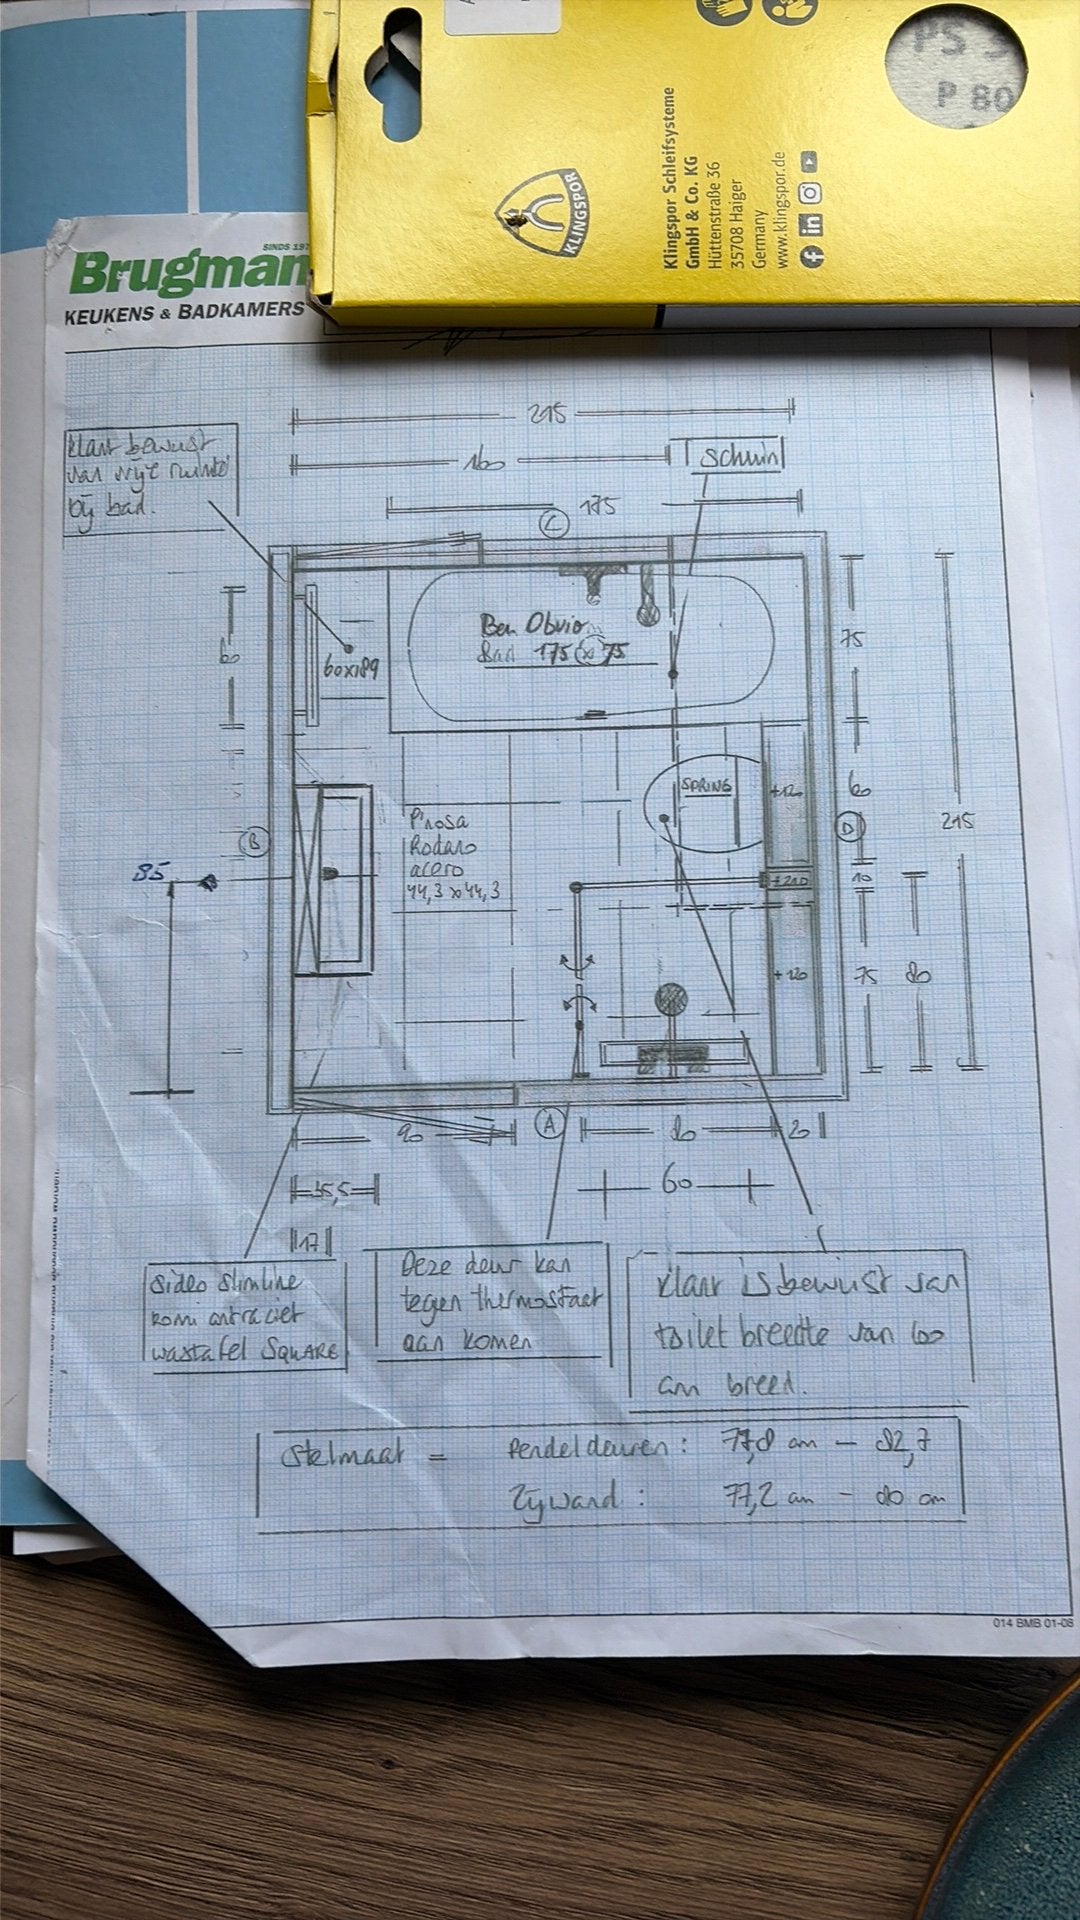 PS 3
P 80
KLINGSPOR
Klingspor Schleifsysteme
GmbH & Co. KG
Hüttenstraße 36
35708 Haiger
Germany
www.klingspor.de
SINDS 197
Brugman
KEUKENS & BADKAMERS
215
160
schuin
175
C
klant bewust
van vrije ruimte
bij bad.
60
60x189
Ben Obvio
Bad 175 x 75
75
SPRING
+120
60
215
B
D
Pirosa
Rodano
acero
44,3 x 44,3
85
+210
10
+120
75
80
90
A
80
20
35,5
60
17
Sideo Slimline
kom antraciet
wastafel SQUARE
Deze deur kan
tegen thermostaat
aan komen
klant is bewust van
toilet breedte van 60
cm breed.
Stelmaat = Pendeldeuren: 77,8 cm - 82,7
Zijwand: 77,2 cm - 80 cm
014 BMB 01-08